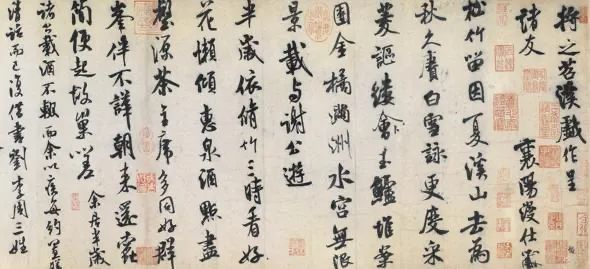 將之苕溪戲作呈
諸友
襄陽漫仕黻
松竹留因夏溪山去為
秋久賡白雪詠更度采
菱謳縷會玉鱸堆案
團金橘滿洲水宮無限
景載与謝公遊
半歲依脩竹三時看好
花懶傾惠泉酒點盡
壑源茶主席多同好群
峯伴不譁朝來還蠹
簡便起故巢嗟 余居半歲
諸公載酒不輟而余以疾每約置膳
清話而已復借書劉李周三姓